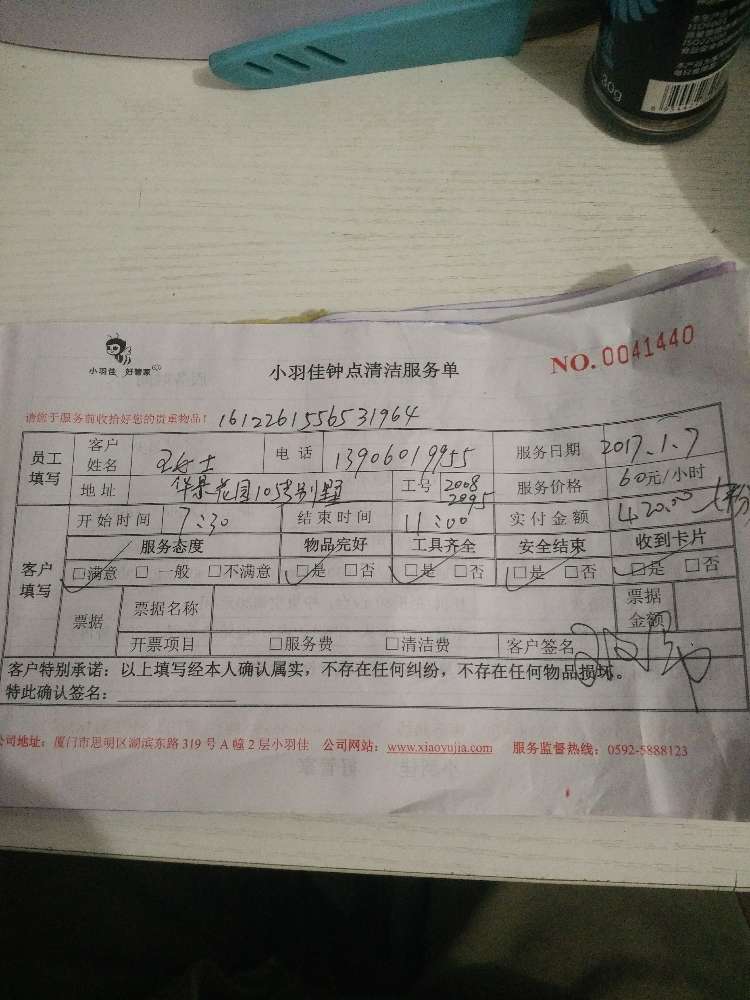 30g
小羽佳 好管家
小羽佳钟点清洁服务单
NO.0041440
请您于服务前收拾好您的贵重物品! 1612261556531964
员工填写 客户姓名 王女士 电话 13906019955 服务日期 2017.1.7
地址 华景花园105号别墅 工号 2008 2995 服务价格 60元/小时
客户填写 开始时间 7:30 结束时间 11:00 实付金额 420.00
服务态度 物品完好 工具齐全 安全结束 收到卡片
□满意 □一般 □不满意 □是 □否 □是 □否 □是 □否 □是 □否
票据 票据名称 票据金额
开票项目 □服务费 □清洁费 客户签名
客户特别承诺:以上填写经本人确认属实,不存在任何纠纷,不存在任何物品损坏。
特此确认签名:
公司地址:厦门市思明区湖滨东路319号A幢2层小羽佳 公司网站:www.xiaoyujia.com 服务监督热线:0592-5888123